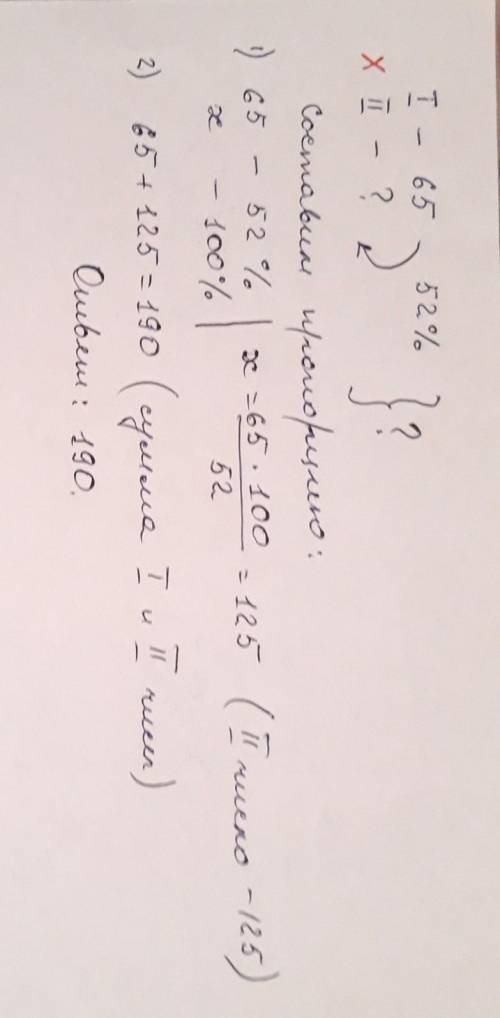 I - 65 52%
x II - ? ?
Составим пропорцию:
1) 65 - 52%
x - 100% x = 65 · 100 / 52 = 125 (II число - 125)
2) 65 + 125 = 190 (сумма I и II чисел)
Ответ: 190.